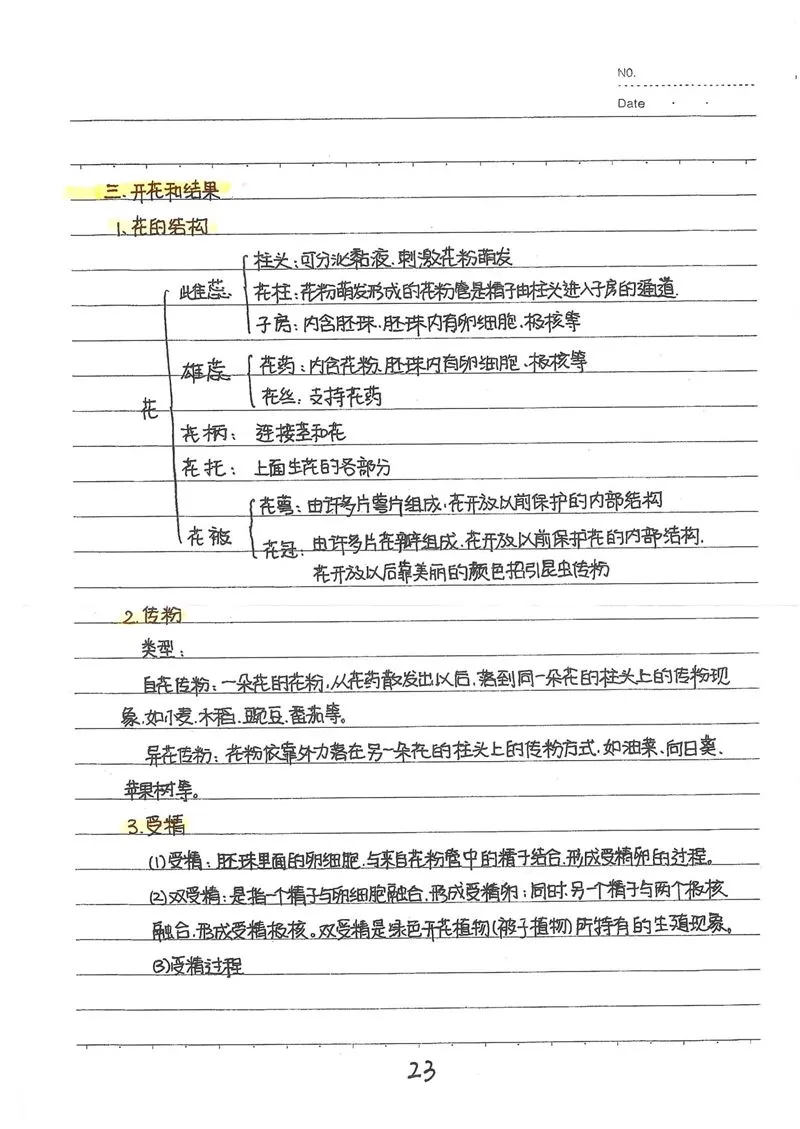 NO.
Date
三.开花和结果
1、花的结构
柱头:可分泌黏液.刺激花粉萌发
雌蕊 花柱:花粉萌发形成的花粉管是精子由柱头进入子房的通道.
子房:内含胚珠.胚珠内有卵细胞、极核等
雄蕊 花药:内含花粉.胚珠内有卵细胞、极核等
花丝:支持花药
花
花柄: 连接茎和花
花托: 上面生花的各部分
花萼:由许多片萼片组成.在开放以前保护的内部结构
花被 花冠:由许多片花瓣组成.在开放以前保护花的内部结构.
在开放以后靠美丽的颜色招引昆虫传粉
2.传粉
类型:
自花传粉:一朵花的花粉.从花药散发出以后.落到同一朵花的柱头上的传粉现
象.如小麦.水稻.豌豆.番茄等。
异花传粉:花粉依靠外力落在另一朵花的柱头上的传粉方式.如油菜.向日葵.
苹果树等。
3.受精
(1)受精:胚珠里面的卵细胞.与来自花粉管中的精子结合.形成受精卵的过程。
(2)双受精:是指一个精子与卵细胞融合.形成受精卵;同时.另一个精子与两个极核
融合.形成受精极核。双受精是绿色开花植物(被子植物)所特有的生殖现象。
(3)受精过程
23